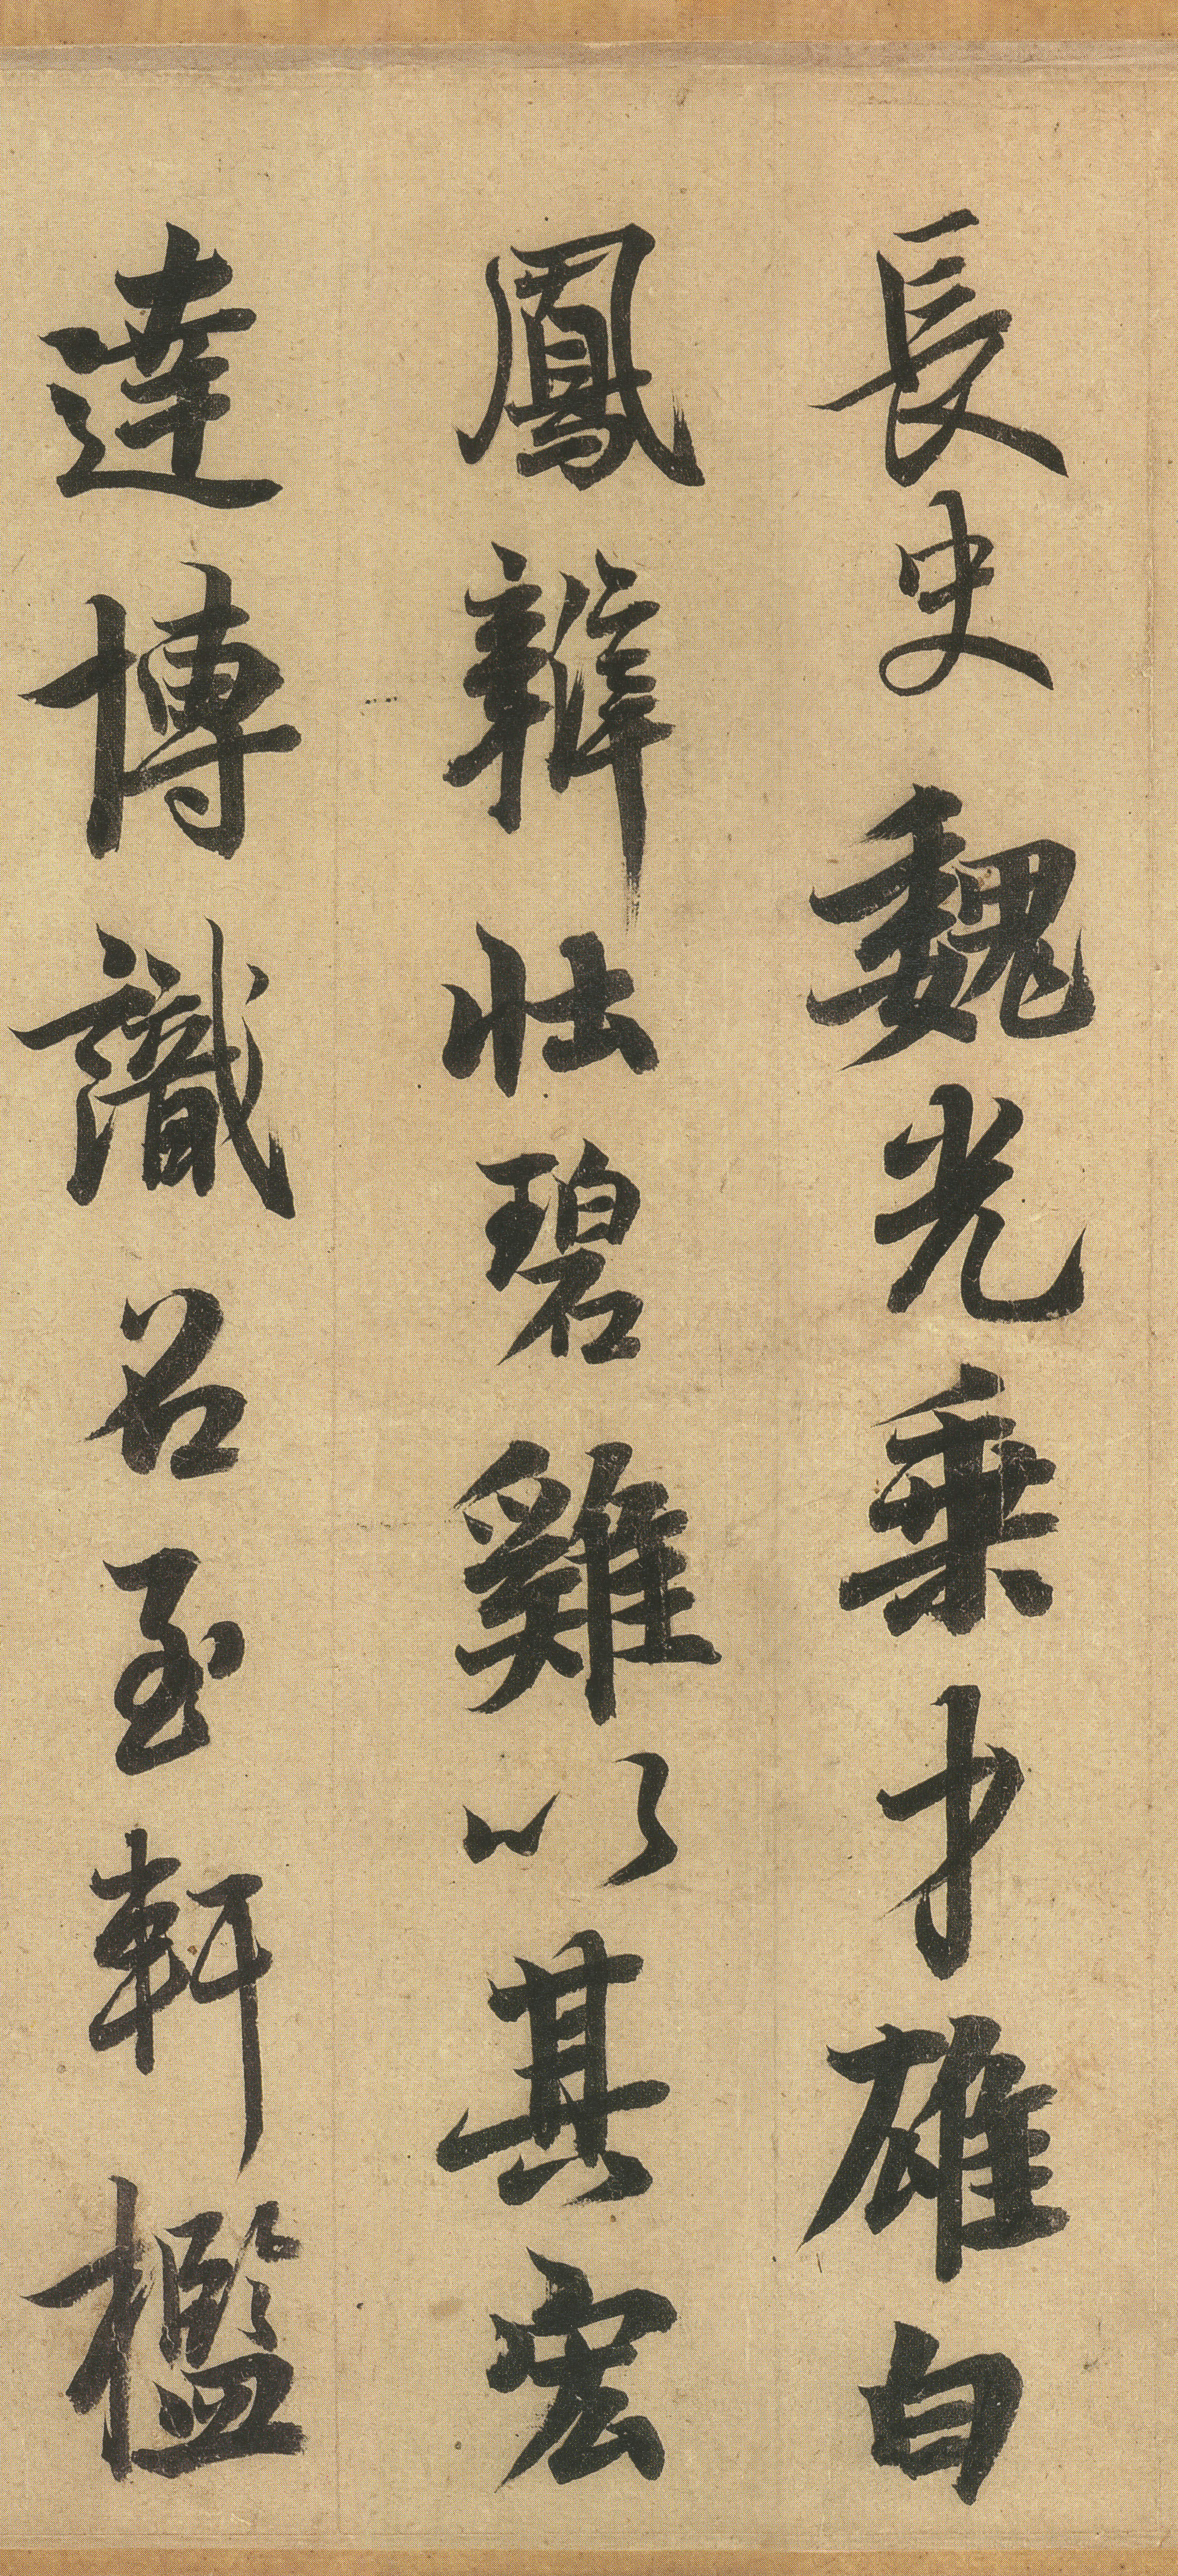 長史魏光乗才雄白
鳳辯壯碧雞以其宏
達博識召至軒檻